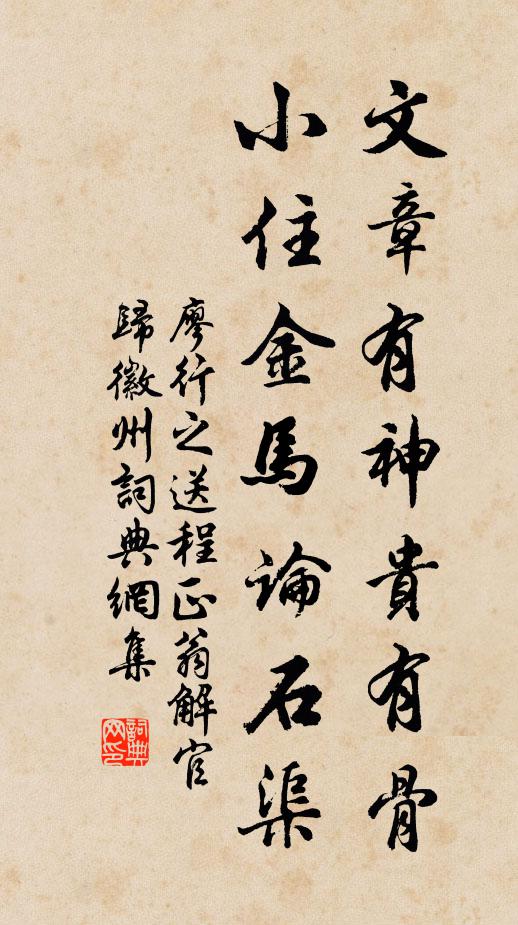 文章有神貴有骨
小住金馬論石渠
廖行之送程正翁解官
歸徽州詞典網集
詞典
网印